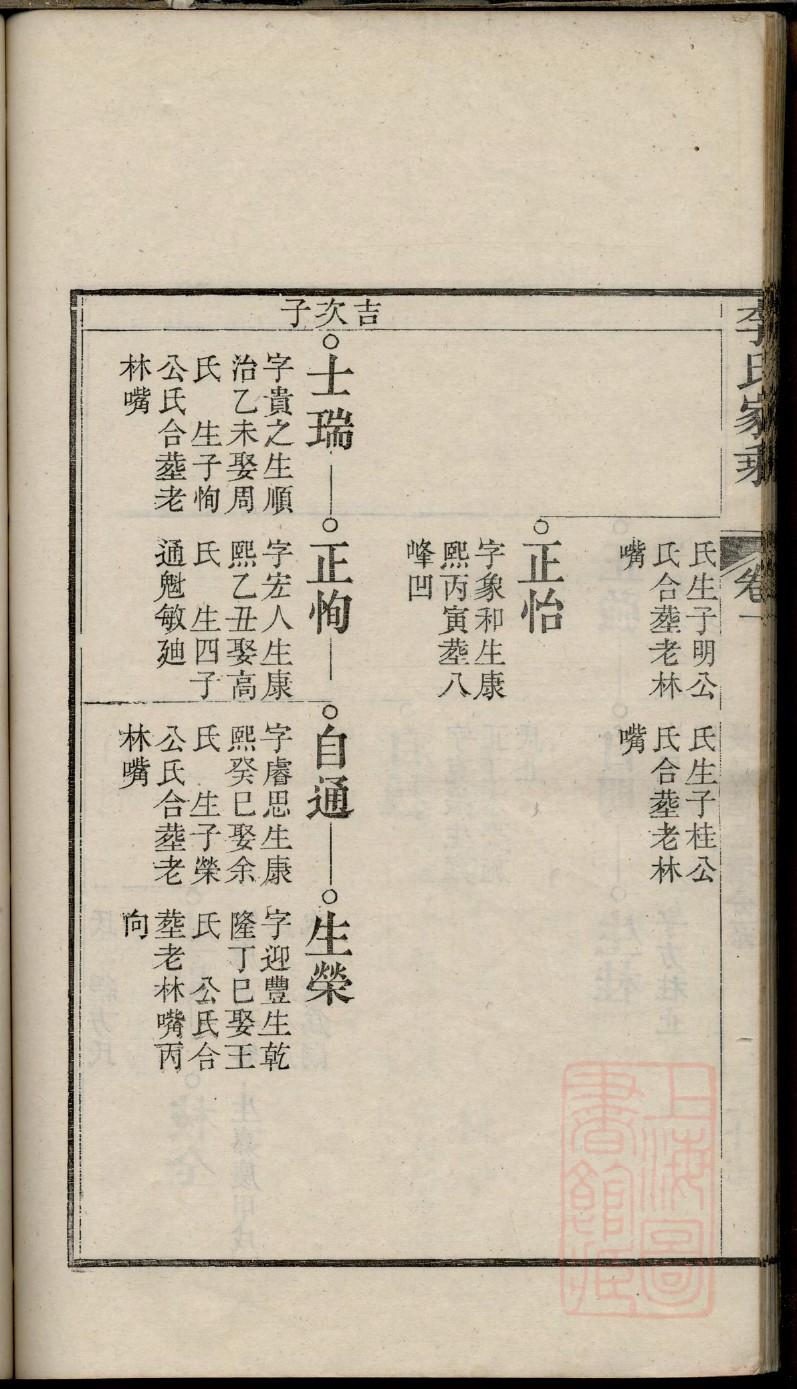 李氏家乘
卷一
氏生子明公
氏合塟老林
嘴
氏生子桂公
氏合塟老林
嘴
正怡
字象和生康
熙丙寅塟八
峰凹
吉次子
士瑞
字貴之生順
治乙未娶周
氏 生子恂
公氏合塟老
林嘴
正恂
字宏人生康
熙乙丑娶高
氏 生四子
通魁敏廸
自通
字睿思生康
熙癸巳娶余
氏 生子榮
公氏合塟老
林嘴
生榮
字迎豐生乾
隆丁巳娶王
氏 公氏合
塟老林嘴丙
向
上海圖
書館藏